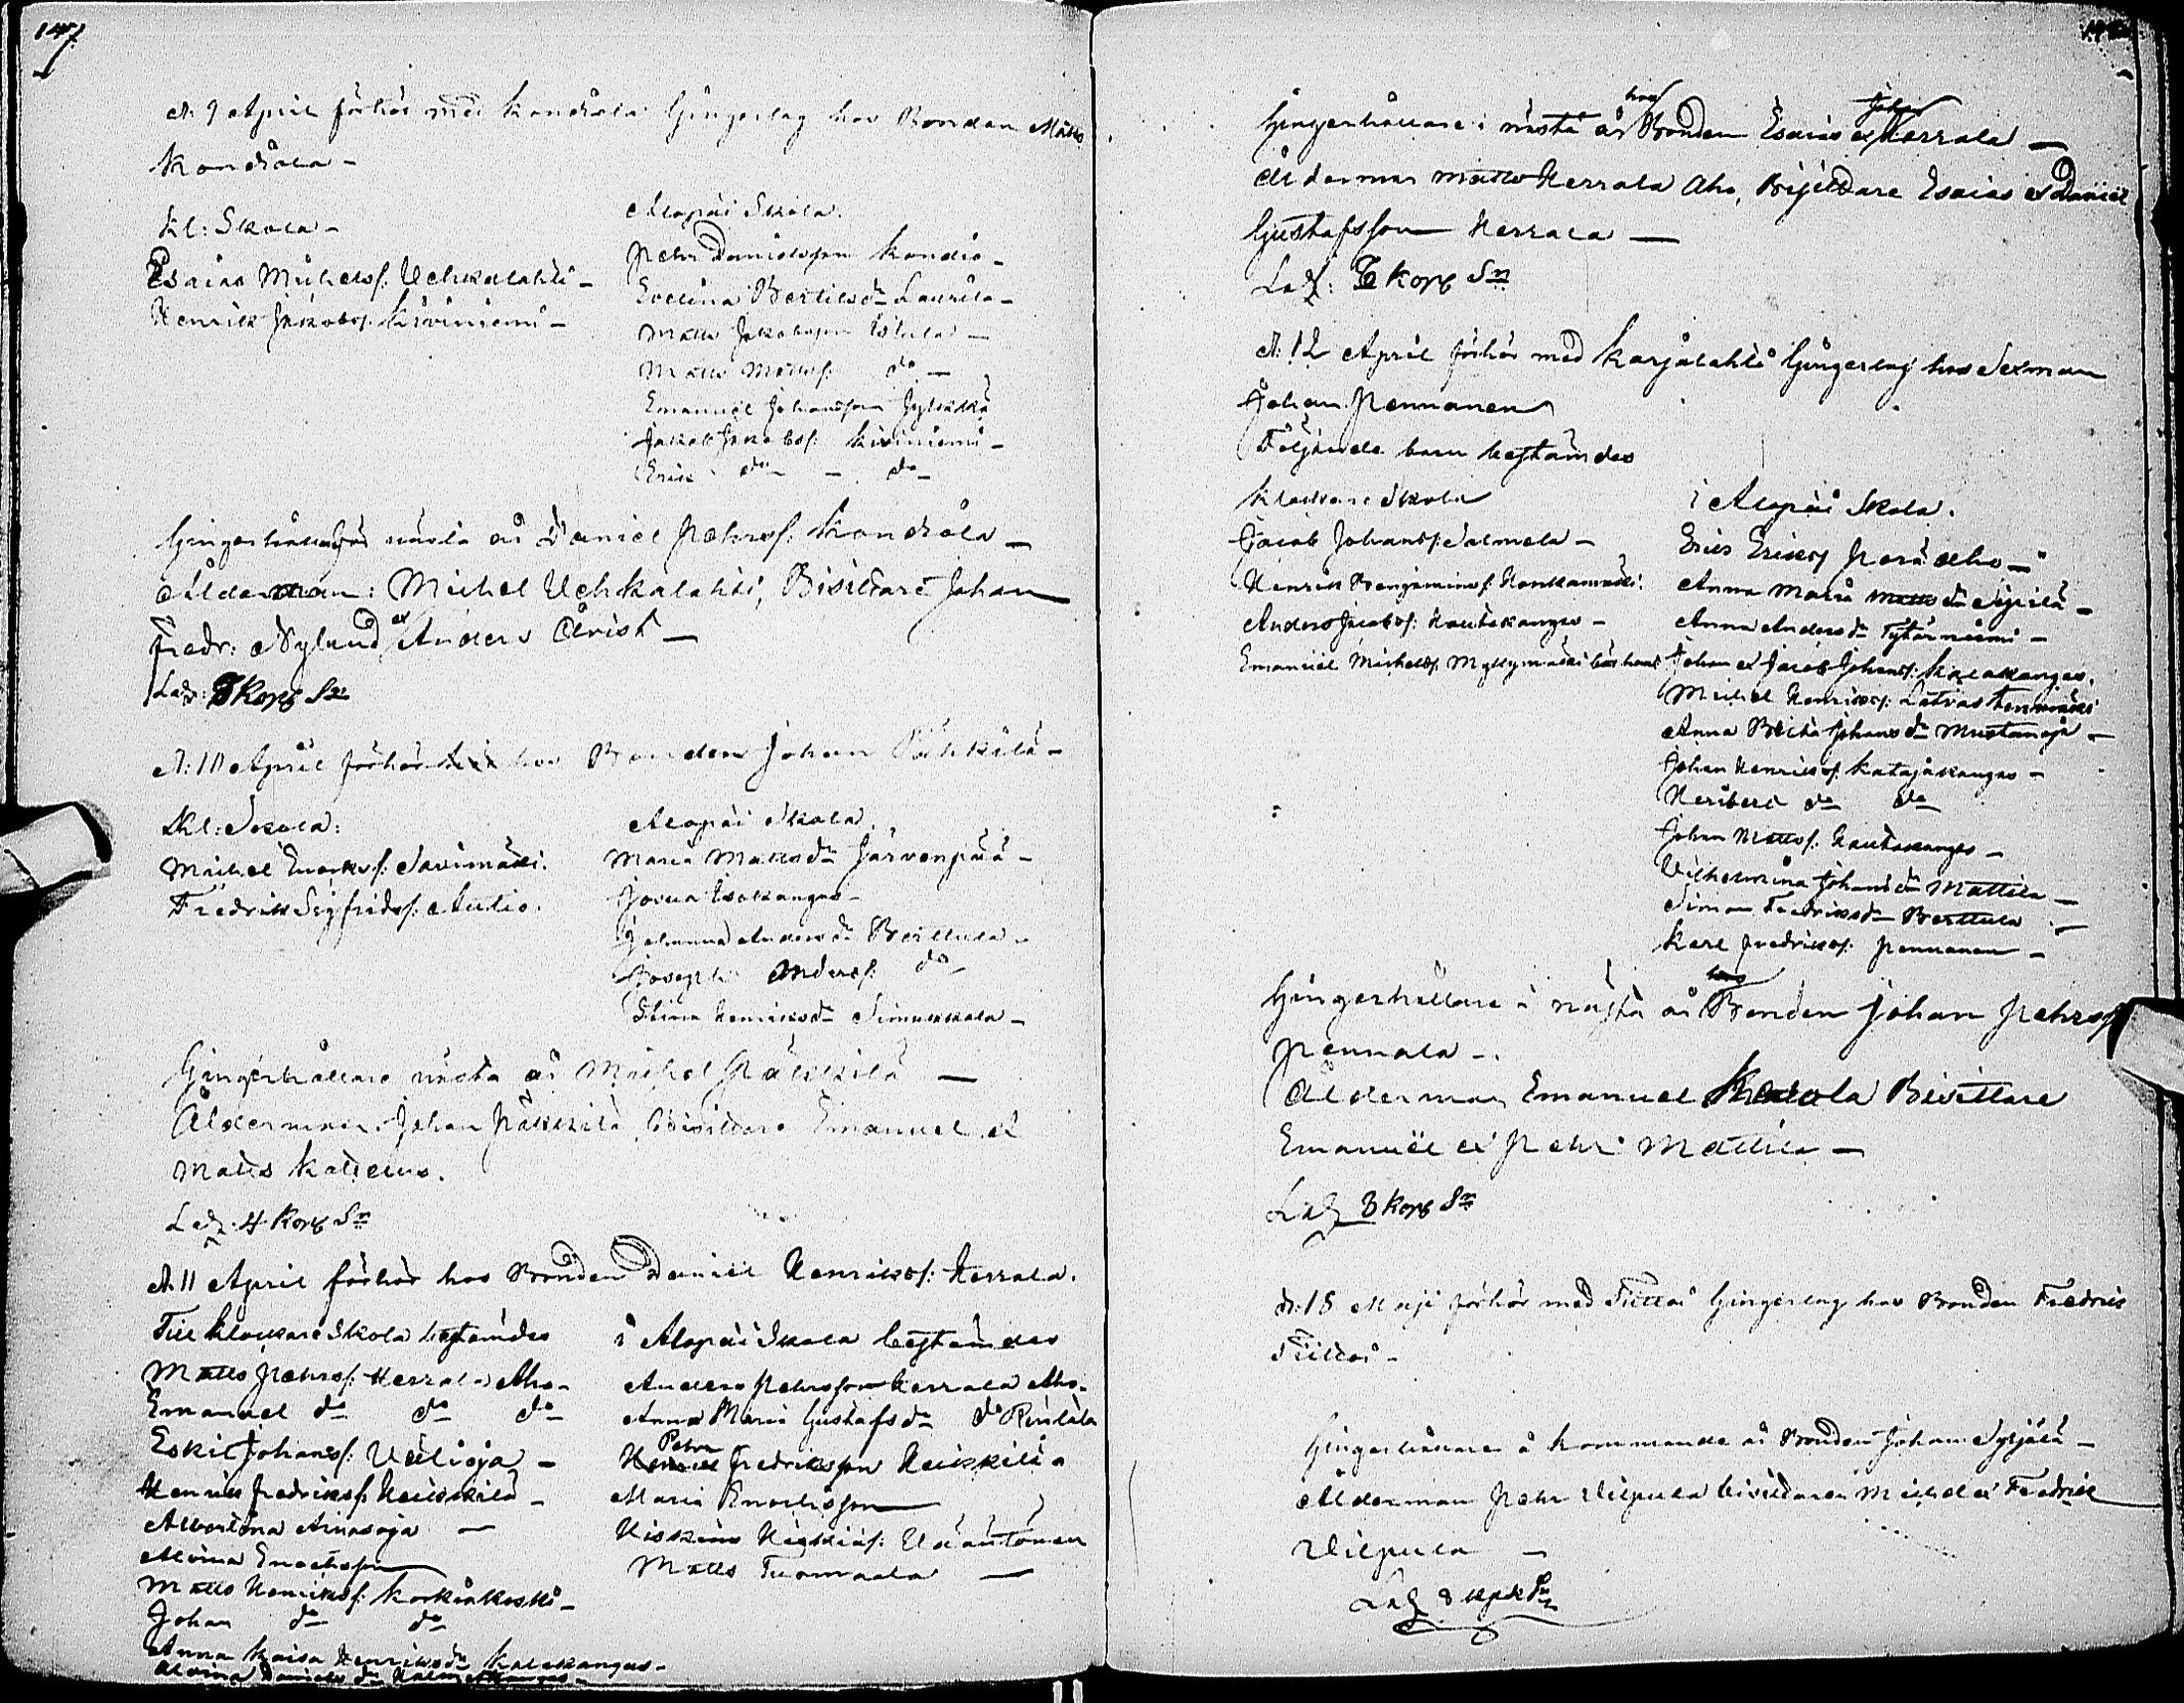 147
d. 9 April förhör med Kondiola Gingerlag hos Bonden Matts
Kondiola -
Kl: Skola -
Esaias Michelsf. Uchkalahti -
Henrik Jakobsf. Kiviniemi -
Alapäi Skola.
Pehr Danielsson Kondio -
Evelina Bertilsdr Laurila -
Matts Jakobsson
Matts Mattsf. do -
Emanuel Johansson Jylhäkä
Jakob Jakobsf. Kiviniemi -
Eric do - do
Gingerhållare nästa år Daniel Pehrsf. Kondiola -
Ålderman: Michel Uchkalahti, Bisittare Johan
Fredr. Nylund et Anders Qvist -
Lad: 3 Korb Sn
d. 10 April förhör hos Bonden Johan Päkkilä -
Kl: Skola:
Michel Enocksf. Savimäki.
Fredrik Sigfridsf. Autio.
Alapäi Skola
Maria Mattsdr Järvenpää -
Josua Isokangas -
Johanna Andersdr Berttula -
Joseph Andersf. do
Stina Henriksdr Simukkala -
Gingerhållare nästa år Michel Päkkilä -
Ålderman Johan Päkkilä, Bisittare Emanuel et
Matts Katelus.
Lad: 4 Korb Sn
d. 11 April förhör hos Bonden Daniel Henriksf: Herrala.
Till Klockare Skola bestämdes
Matts Pehrsf: Herrala Aho -
Emanuel do do do
Eskil Johansf: Välioja -
Henrik Fredriksf. Heikkilä -
Albertina Ainasoja -
Alvina Enochsson
Matts Henriksf: Korkiakoski -
Johan do do
Anna Kaisa Henriksdr Kalakangas -
Alvina Danielsdr
i Alapäi Skola bestämdes
Anders Pehrsson Herrala Aho -
Anna Maria Gustafsdr do Rintala
Petter Fredriksson Heikkilä
Maria Enochsson
Hiskias Hiskiasf:
Matts Tuomaala -
Gingerhållare i nästa år hos Bonden Esaias et Johan Herrala -
Ålderman Matts Herrala Aho, Bisittare Esaias et Daniel
Gustafsson Herrala -
Lad: 6 Korb Sn
d. 12 April förhör med Karjalahti Gingerlag hos Sexman
Johan Pennanen
Följande barn bestämdes
Klockare Skola
Jacob Johansf: Salmela -
Henrik Benjaminsf. Honkamäki.
Anders Jacobsf: Hautakangas -
Emanuel Michelsf. Myllymäki
i Alapäi Skola.
Eric Ericsf Peräaho -
Anna Maria Mattsdr Sipilä -
Anna Andersdr Tytärniemi -
Johan et Jacob Johansf: Kalakangas.
Michel Henriksf: Latvastenmäki
Anna Brita Johansdr Mustaoja -
Johan Henriksf. Katajakangas -
Heribert do do
Johan Mattsf: Hautakangas -
Vilhelmina Johansdr Mattila -
Simon Fredriksdr Berttula -
Karl Fredriksf: Pennanen -
Gingerhållare i nästa år hos Bonden Johan Pehrsf
Pennala -
Ålderman Emanuel Bisittare
Emanuel et Pehr Mattila -
Lad 3 Korb Sn
d. 18 Maji förhör med Tiittoi Gingerlag hos Bonden Fredric
Tiittoi -
Gingerhållare i kommande år Bonden Johan Syrjälä -
Ålderman Pehr Vilpula bisittare Michel et Fredric
Vilpula -
Lad 8 kpk Sn